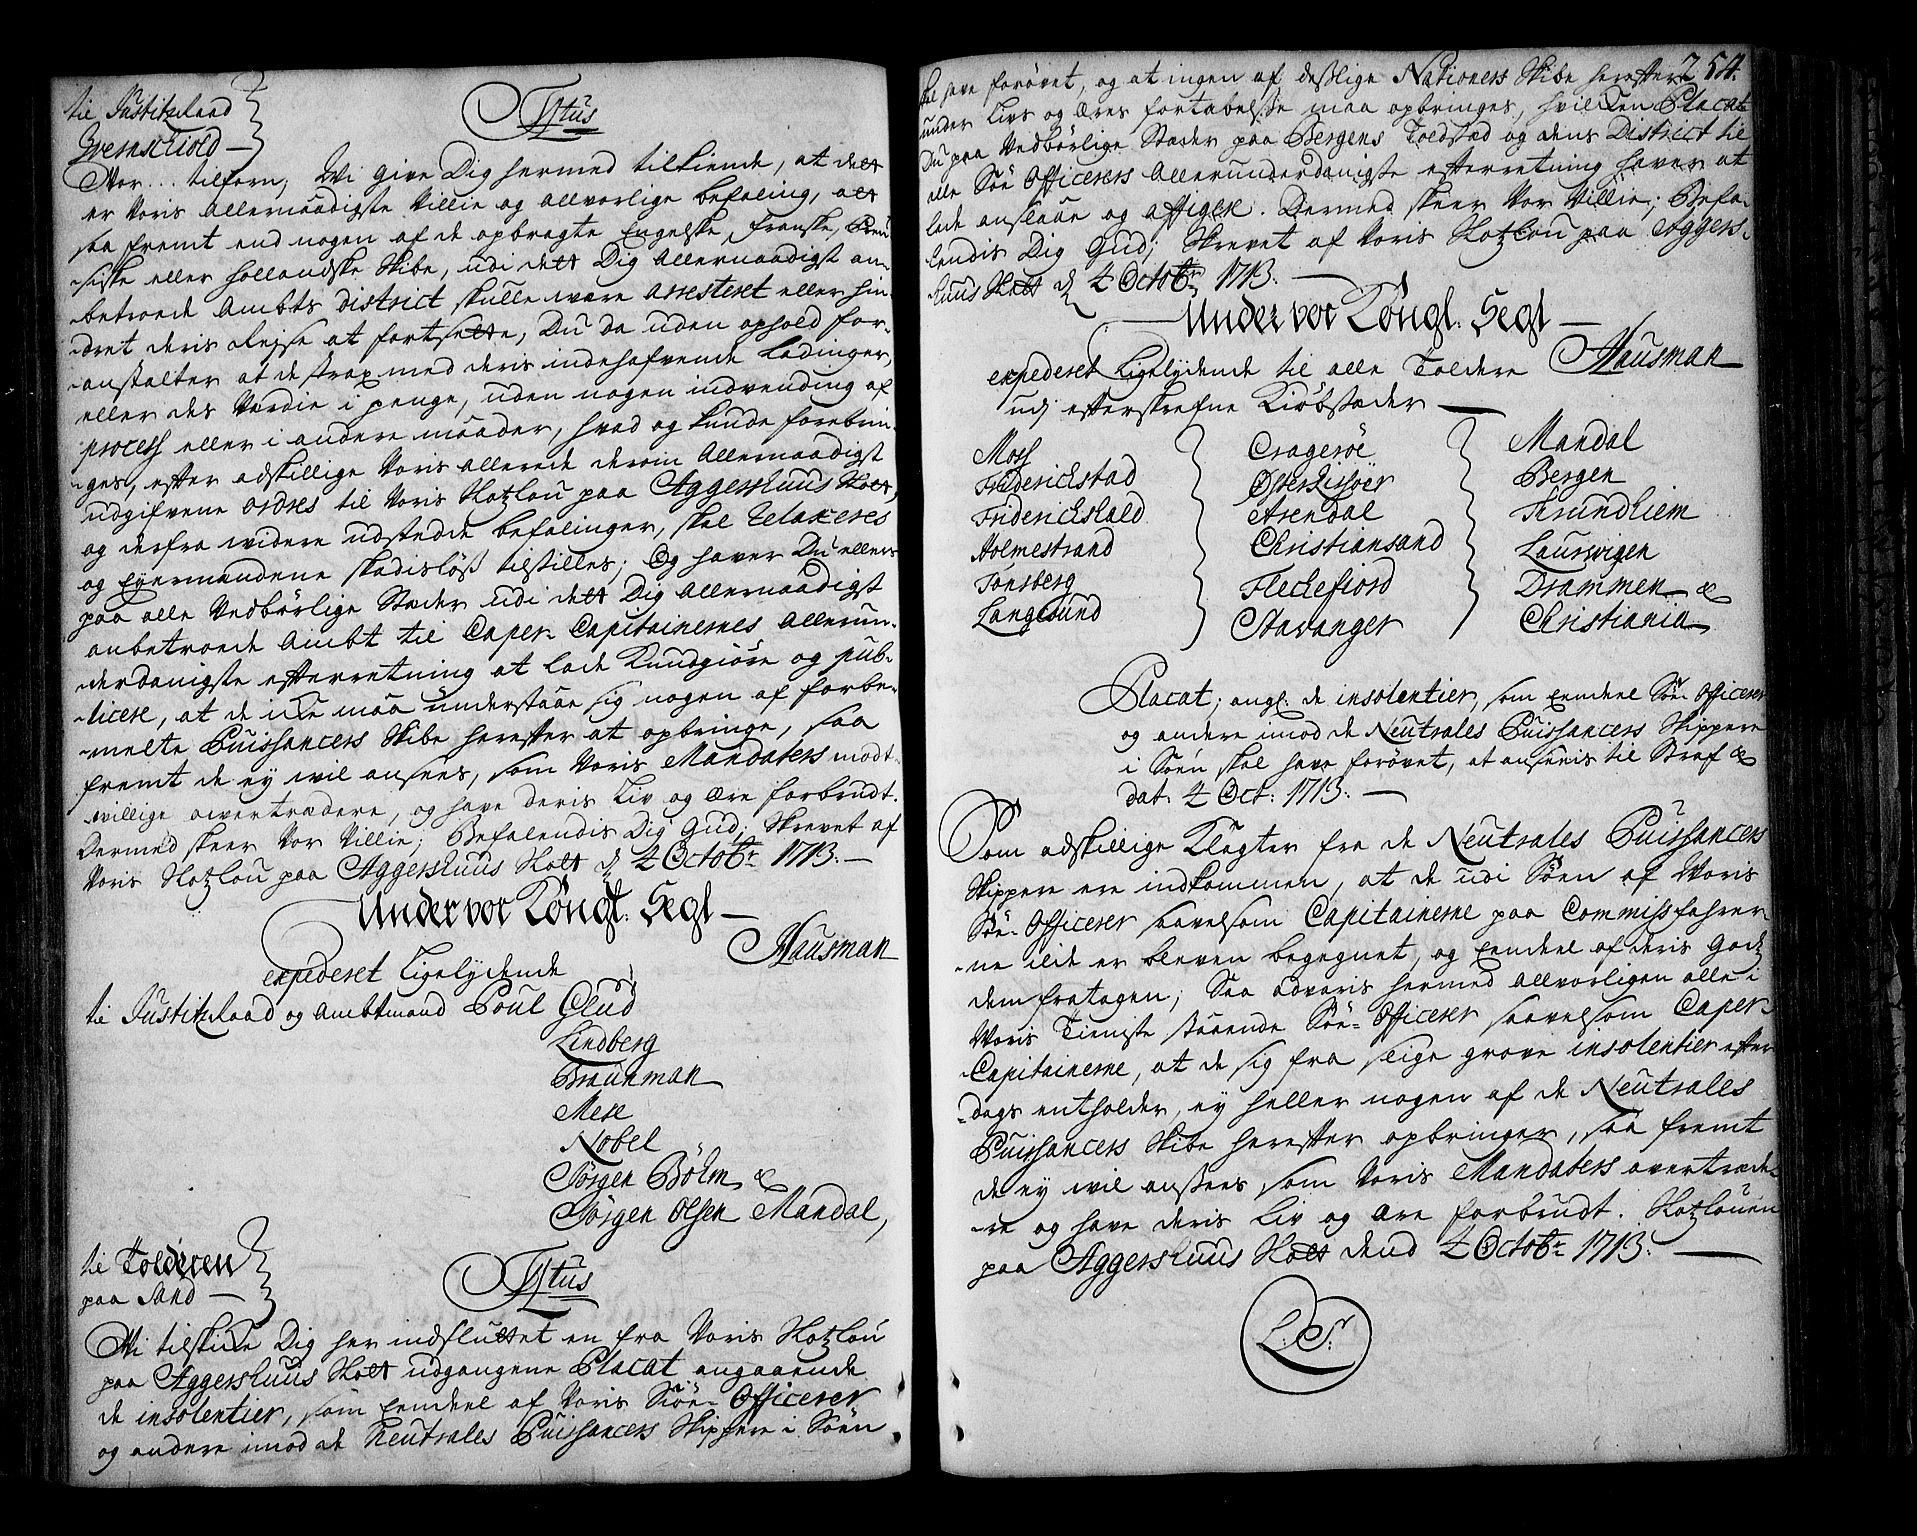 til Justitzraad
Gremschiold —
Tÿtus
Vor... tilforn, Wi give Dig hermed tilkiende, at dett
er Voris Allernaadigste Villie og allvorlige befaling, att
saa fremt end nogen af de opbragte Engelske, Franske, Preu-
siske eller hollandske Skibe, udi dett Dig Allernaadigst an-
betroede Ambts District skulle være arresteret eller hin-
dret deris Rejse at fortsette, Du da uden ophold for-
anstalter at de strax med deris indehafvende Ladinger,
eller des Værdie i penge, uden nogen indvending af
process eller i andre maader, hvad og kunde forebrin-
ges, efter adskillige Voris allerede derom Allernaadigst
udgifvene ordres til Voris Slotzlou paa Aggershuus Slott,
og derfra widere udstedde befalinger, skal relaxeres
og Eyermændene skadisløss tilstilles; Og haver Du ellers
paa alle Vedbørlige Stæder udi dett Dig Allernaadigst
anbetroede Ambt til Caper-Capitainernes Allerun-
derdanigste efterretning at lade Kundgiøre og pub-
licere, at de icke maa understaae sig nogen af forbe-
melte Puissancers Skibe herefter at opbringe, saa
fremt de ey wil ansees, som Voris Mandaters modt-
willige overtrædere, og have deris Liv og Ære forbrudt.
Dermed skeer Vor Villie; Befalendis Dig Gud; Skrevet af
Voris Slotzlou paa Aggershuus Slott d. 4 Octobr. 1713. —
Under vor Kongl. Segl —
Hausman
expederet Ligelydende
til Justitzraad og Ambtmand Poul Glud
Lindberg
Braunman
Mese
Nobel
Jørgen Bölm &
Jørgen Olsen Mandal,
til Tolderen
paa Sand —
Tÿtus
Wi tilskicke Dig her indsluttet en fra Voris Slotzlou
paa Aggershuus Slott udgangene Placat angaaende
de insolentier, som Eendeel af Voris Söe-Officerer
og andre imod de Neutrales Puissancers Skippere i Söen
254.
skal have forøvet, og at ingen af deslige Nationers Skibe herefter
under Livs og Æres fortabelse maa opbringes, hvilken Placat
Du paa Vedbørlige Stæder paa Bergens Toldsted og dens District til
alle Söe Officerers Allerunderdanigste efterretning haver at
lade anslaae og affigere. Dermed skeer Vor Villie; Befa-
lendis Dig Gud; Skrevet af Voris Slotzlou paa Aggers-
huus Slott d. 4 Octobr. 1713. —
Under vor Kongl. Segl —
Hausman
expederet Ligelydende til alle Toldere
udj efterskrefne Kiøbstæder —
Moss
Friderichstad
Friderichshald
Holmestrand
Tønsberg
Langesund
Cragerøe
Østerriisøer
Arendal
Christiansand
Fleckefiord
Stavanger
Mandal
Bergen
Trundhiem
Laurwigen
Drammen &
Christiania
Placat, angl. de insolentier, som Eendeel Söe-Officerer
og andre imod de Neutrales Puissancers Skippere
i Søen skal have forøvet, at anseeis til Straf &
dat. 4 Oct: 1713. —
Som adskillige Klagter fra de Neutrales Puissancers
Skippere ere indkommen, at de udi Søen af Voris
Söe-Officerer saavelsom Capitainerne paa Commissfahrer-
ne ilde er bleven begegnet, og Eendeel af deris Godz
dem fratagen; Saa advaris hermed allvorligen alle i
Voris Tieniste staaende Söe-Officerer saavelsom Caper-
Capitainerne, at de sig fra slige grove insolentier efter-
dags entholder, ey heller nogen af de Neutrales
Puissancers Skibe herefter opbringer, saa fremt
de ey wil ansees som Voris Mandaters overtræde-
re og have deris Liv og Ære forbrudt. Slotzlouen
paa Aggershuus Slott dend 4 Octobr. 1713. —
L. S.